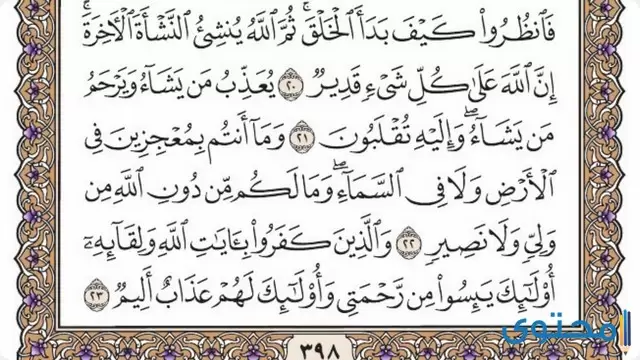 فَٱنظُرُوا۟ كَيْفَ بَدَأَ ٱلْخَلْقَ ۚ ثُمَّ ٱللَّهُ يُنشِئُ ٱلنَّشْأَةَ ٱلْءَاخِرَةَ ۚ
إِنَّ ٱللَّهَ عَلَىٰ كُلِّ شَىْءٍ قَدِيرٌ ٢٠ يُعَذِّبُ مَن يَشَآءُ وَيَرْحَمُ
مَن يَشَآءُ ۖ وَإِلَيْهِ تُقْلَبُونَ ٢١ وَمَآ أَنتُم بِمُعْجِزِينَ فِى
ٱلْأَرْضِ وَلَا فِى ٱلسَّمَآءِ ۖ وَمَا لَكُم مِّن دُونِ ٱللَّهِ مِن
وَلِىٍّ وَلَا نَصِيرٍ ٢٢ وَٱلَّذِينَ كَفَرُوا۟ بِـَٔايَـٰتِ ٱللَّهِ وَلِقَآئِهِۦٓ
أُو۟لَـٰٓئِكَ يَئِسُوا۟ مِن رَّحْمَتِى وَأُو۟لَـٰٓئِكَ لَهُمْ عَذَابٌ أَلِيمٌ ٢٣
٣٩٨
محتوى